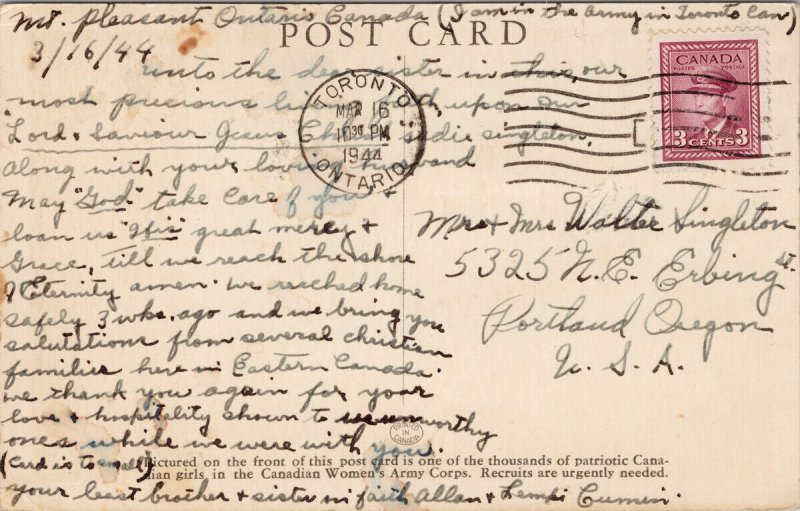 Mt. Pleasant Ontario Canada (I am in the army in Toronto Can)
POST CARD
3/16/44
unto the dear sister in this, our
most precious upon our
Lord & Saviour Jesus Sadie Singleton,
along with your
May "God" take care of you
loan us "His" great mercy &
Grace, till we reach the shore
of Eternity amen. We reached home
safely 3 wks. ago and we bring you
salutations from several christian
families here in Eastern Canada.
we thank you again for your
love & hospitality shown to us unworthy
ones while we were with you.
(Card is to small)
your least brother & sister in faith Allan & Lempi Cumin.
TORONTO
MAR 16
10 30 PM
1944
ONTARIO
CANADA
POSTES POSTAGE
3 CENTS 3
Mr & Mrs Walter Singleton
5325 N.E. Erbing St.
Portland Oregon
U. S. A.
PRINTED
IN
CANADA
Pictured on the front of this post card is one of the thousands of patriotic Cana-
dian girls in the Canadian Women's Army Corps. Recruits are urgently needed.